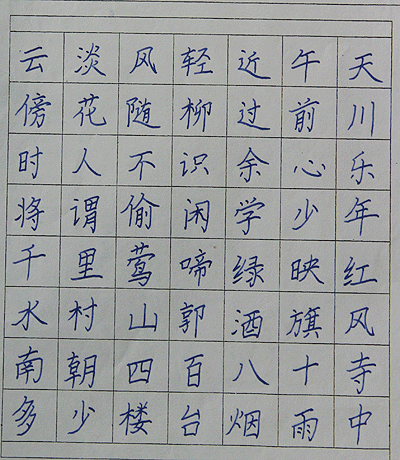 云淡风轻近午天
傍花随柳过前川
时人不识余心乐
将谓偷闲学少年
千里莺啼绿映红
水村山郭酒旗风
南朝四百八十寺
多少楼台烟雨中